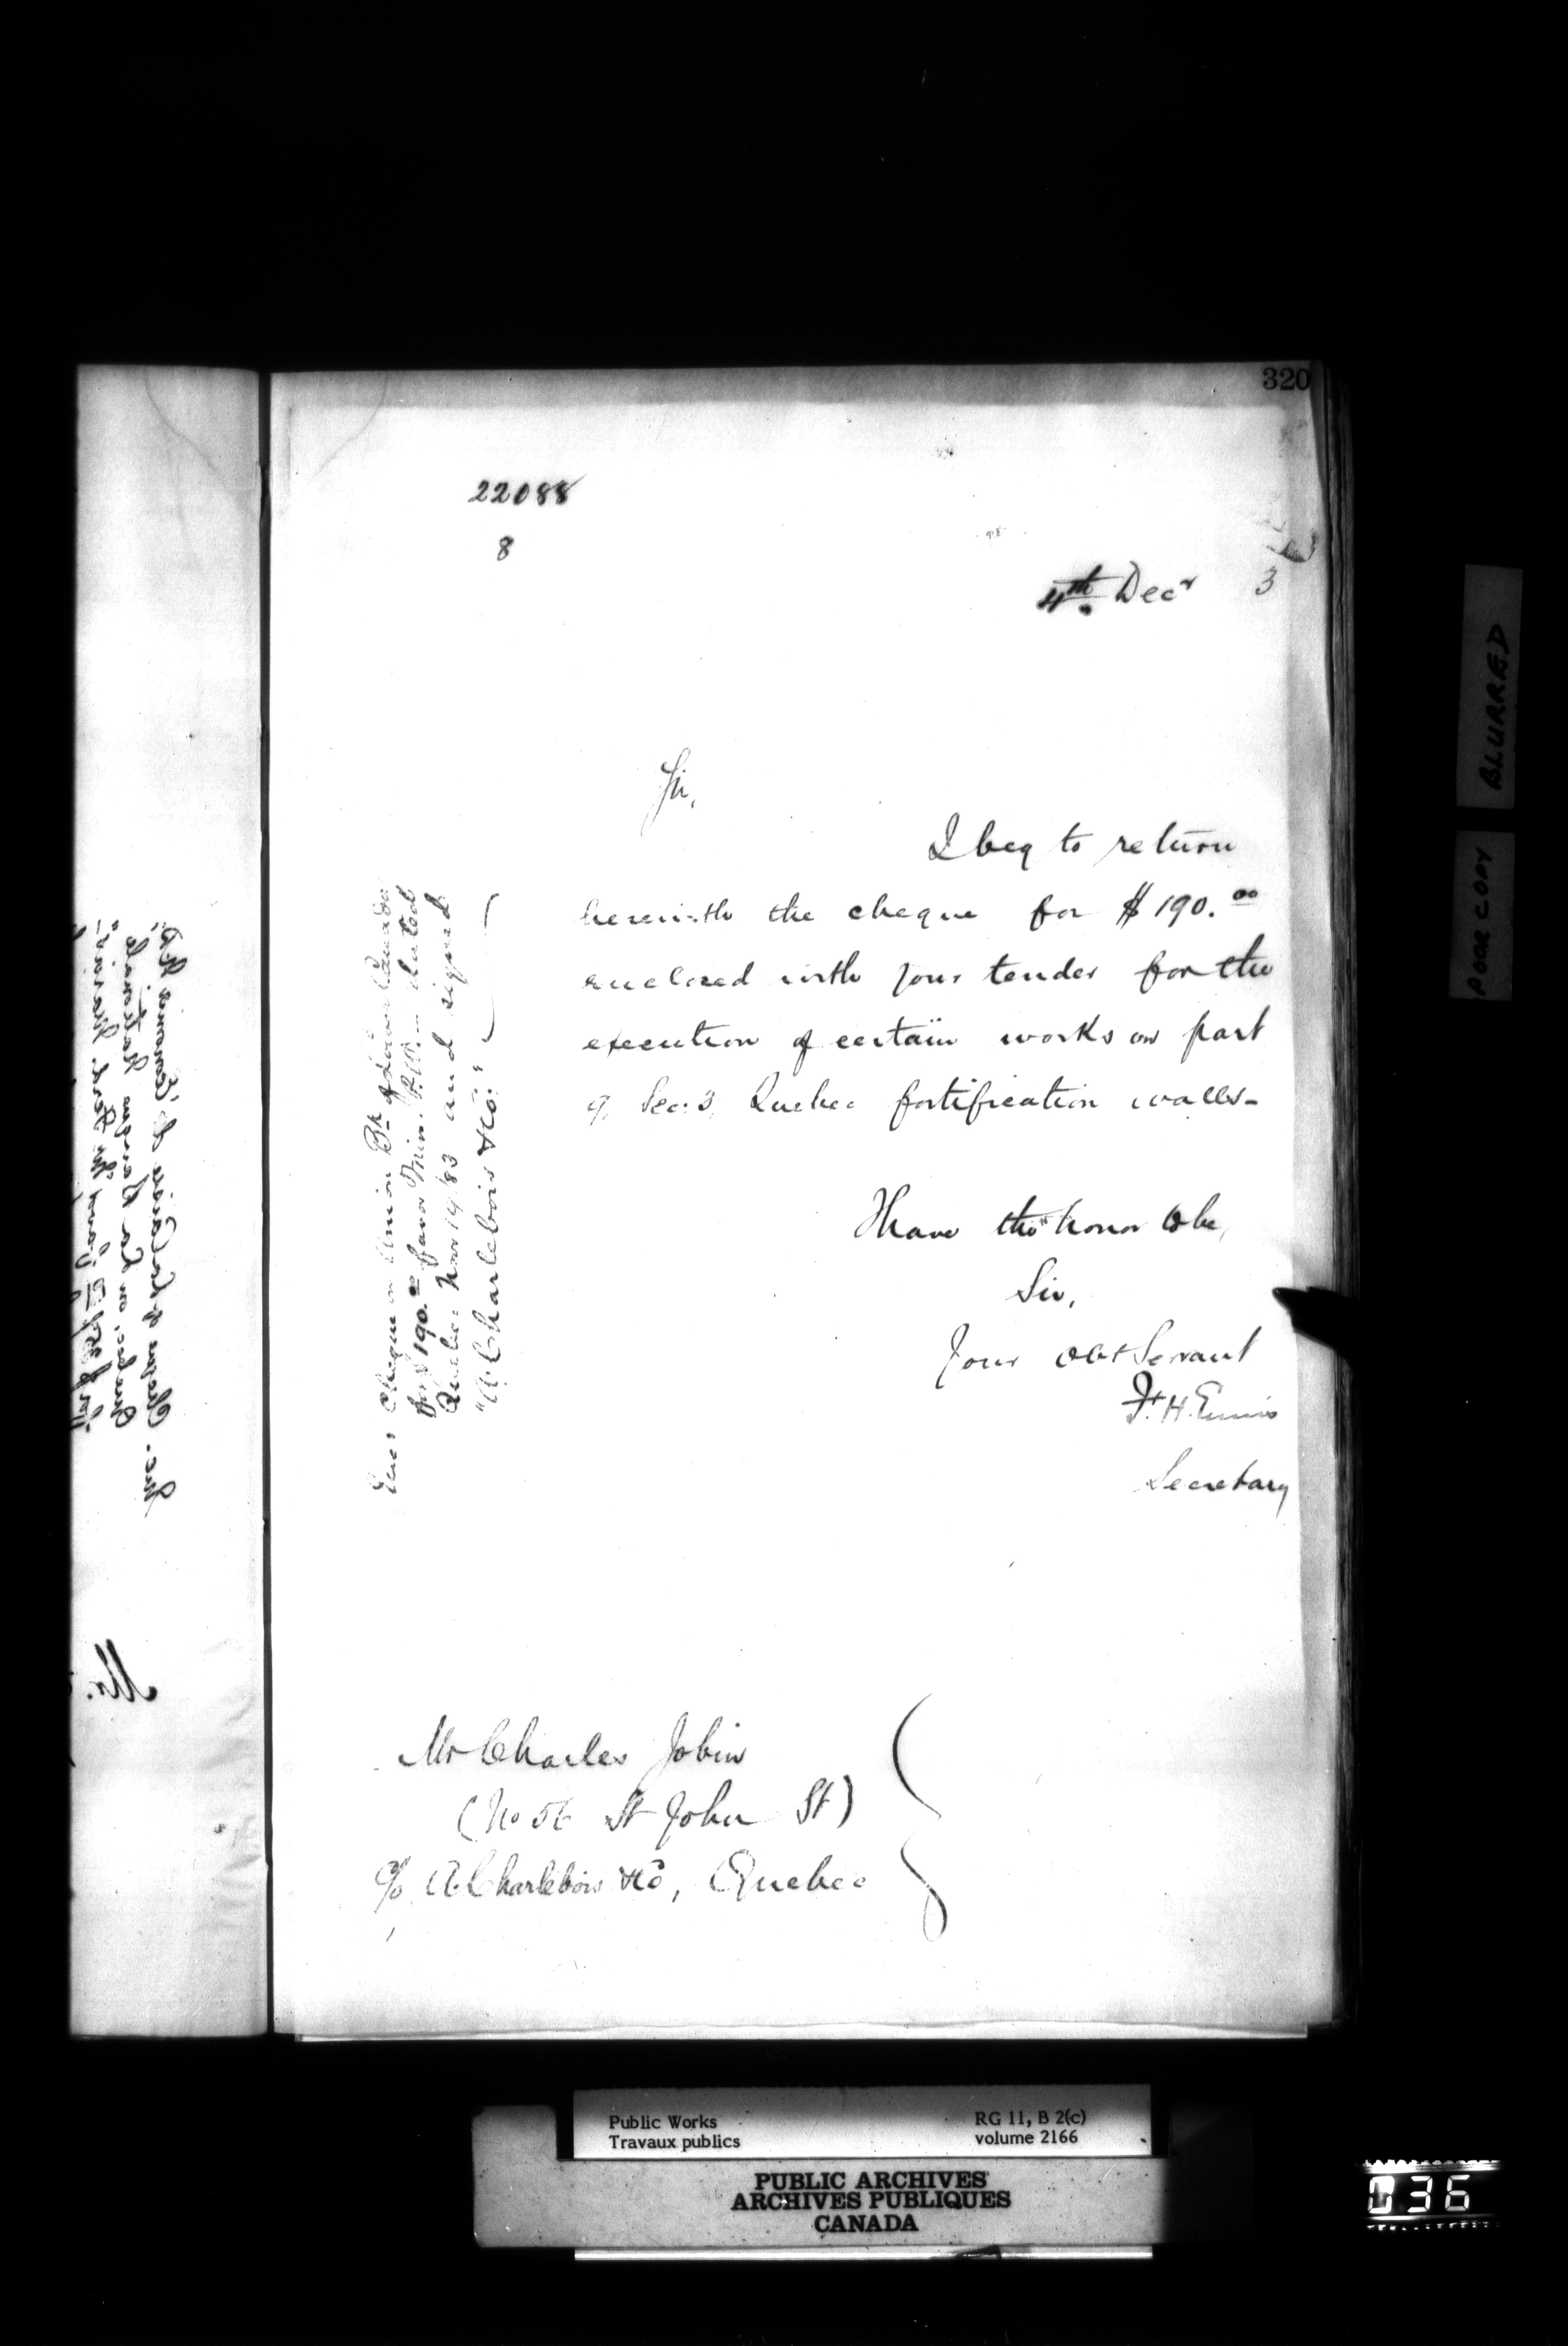 320
22088
8
4th. Decr 3
Sir,
I beg to return
herewith the cheque for $190.00
enclosed with your tender for the
execution of certain works on part
of Sec: 3, Quebec fortification walls-
I have the honor to be,
Sir,
Your Obt Servant
F. H. Ennis
Secretary
Cheque on Union Bk of Lower Canada
for $190.00 favor Min: P.W. dated
Quebec Nov 19/83 and signed
"A. Charlebois & Co:"
Mr Charles Jobin
(No 56 St John St)
c/o A. Charlebois & Co, Quebec
Mr.
BLURRED
POOR COPY
Public Works
Travaux publics
RG 11, B 2(c)
volume 2166
PUBLIC ARCHIVES
ARCHIVES PUBLIQUES
CANADA
036